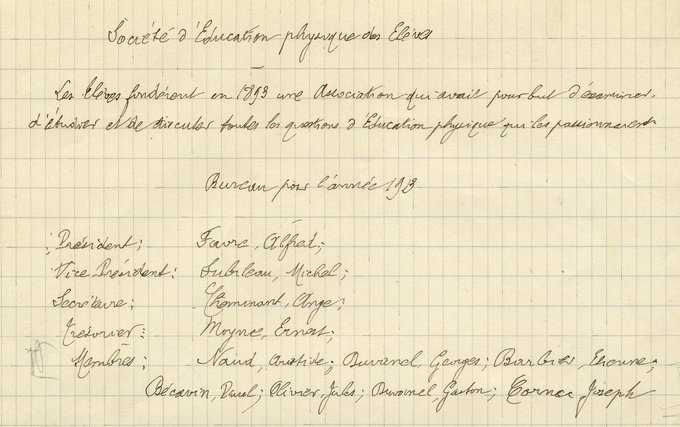 Société d'Education physique des Elèves
Les Elèves fondèrent en 1893 une Association qui avait pour but d'examiner,
d'étudier et de discuter toutes les questions d'Education physique qui les passionnèrent
Bureau pour l'année 1913
Président; Favre, Alfred;
Vice-Président: Subileau, Michel;
Secrétaire; Cheminant, Ange;
Trésorier: Moyne, Ernest;
Membres; Naud, Aristide; Duvanel, Georges; Barbier, Etienne;
Bécavin, Paul; Olivier, Jules; Gaston; Joseph